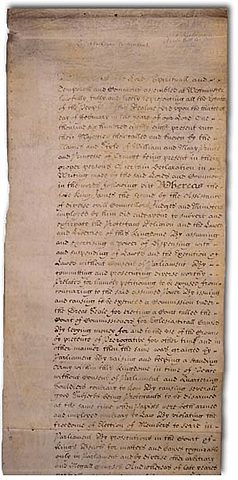 Whereas the Lords Spirituall and
Temporall and Comons assembled at Westminster
lawfully fully and freely representing all the Estates
of the People of this Realme did upon the thirteenth
day of February in the yeare of our Lord One
thousand six hundred eighty eight present unto
their Majesties then called and known by the
Names and Stile of William and Mary Prince
and Princesse of Orange being present in their
proper persons a certain Declaration in
Writing made by the said Lords and Comons
in the words following viz Whereas the
late King James the Second by the Assistance
of diverse evill Councellors Judges and Ministers
imployed by him did endeavour to subvert and
extirpate the Protestant Religion and the Lawes
and Liberties of this Kingdome By assuming
and exercising a power of dispensing with
and suspending of Lawes and the Execution of
Lawes without consent of Parliament By
committing and prosecuting diverse worthy
Prelates for humbly petitioning to be excused from
concurring to the said assumed power By issuing
and causing to be executed a Commission under
the Great Seale for erecting a Court called the
Court of Commissioners for Ecclesiasticall Causes
By levying money for and to the use of the Crowne
by pretence of Prerogative for other time and in
other manner then the same was granted by
Parliament By raising and keeping a standing
army within this Kingdome in time of Peace
without consent of Parliament and quartering
Souldiers contrary to Law By causing severall
good Subjects being Protestants to be disarmed
at the same time when Papists were both armed
and employed contrary to Law By violating the
freedome of Election of Members to serve in
Parliament By prosecutions in the Court of
Kings Bench for matters and causes cognizable
only in Parliament and by diverse other arbitrary
and illegall courses And whereas of late yeares